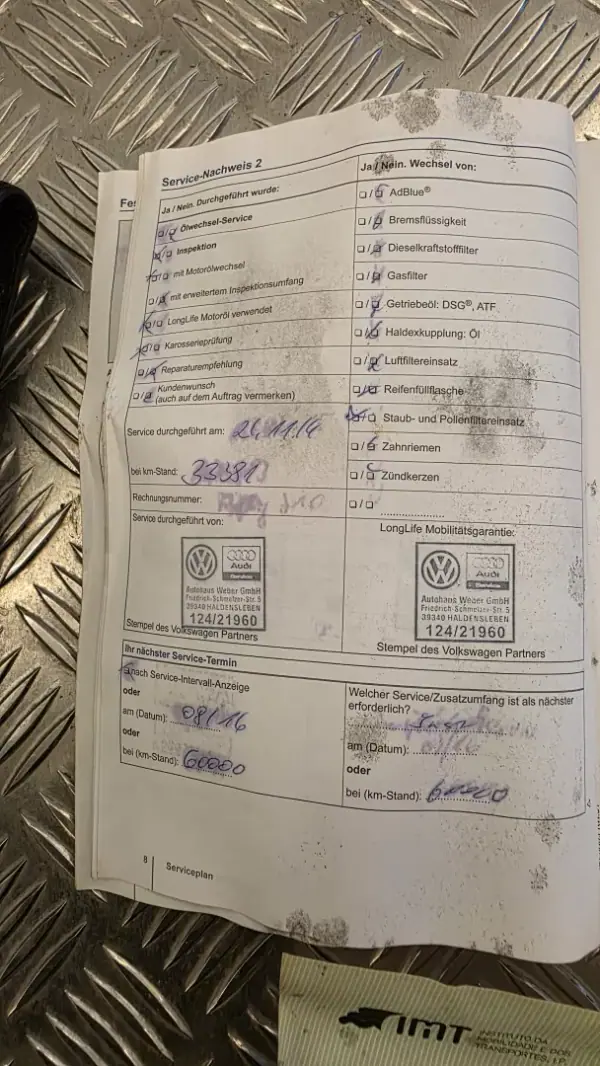 Fes
Service-Nachweis 2
Ja / Nein. Durchgeführt wurde:
Ölwechsel-Service
Inspektion
mit Motorölwechsel
mit erweitertem Inspektionsumfang
LongLife Motoröl verwendet
Karosserieprüfung
Reparaturempfehlung
Kundenwunsch
(auch auf dem Auftrag vermerken)
Service durchgeführt am:
bei km-Stand: 33381
Rechnungsnummer:
Service durchgeführt von:
Audi
Autohaus Weber GmbH
Friedrich-Schmelzer-Str. 5
39340 HALDENSLEBEN
124/21960
Stempel des Volkswagen Partners
Ja / Nein. Wechsel von:
AdBlue®
Bremsflüssigkeit
Dieselkraftstofffilter
Gasfilter
Getriebeöl: DSG®, ATF
Haldexkupplung: Öl
Luftfiltereinsatz
Reifenfüllflasche
Staub- und Pollenfiltereinsatz
Zahnriemen
Zündkerzen
LongLife Mobilitätsgarantie:
Audi
Autohaus Weber GmbH
Friedrich-Schmelzer-Str. 5
39340 HALDENSLEBEN
124/21960
Stempel des Volkswagen Partners
Ihr nächster Service-Termin
nach Service-Intervall-Anzeige
oder
am (Datum): 08/16
oder
bei (km-Stand): 60000
Welcher Service/Zusatzumfang ist als nächster
erforderlich?
am (Datum):
oder
bei (km-Stand): 60000
8
Serviceplan
IMT
INSTITUTO DA
MOBILIDADE E DOS
TRANSPORTES, I.P.